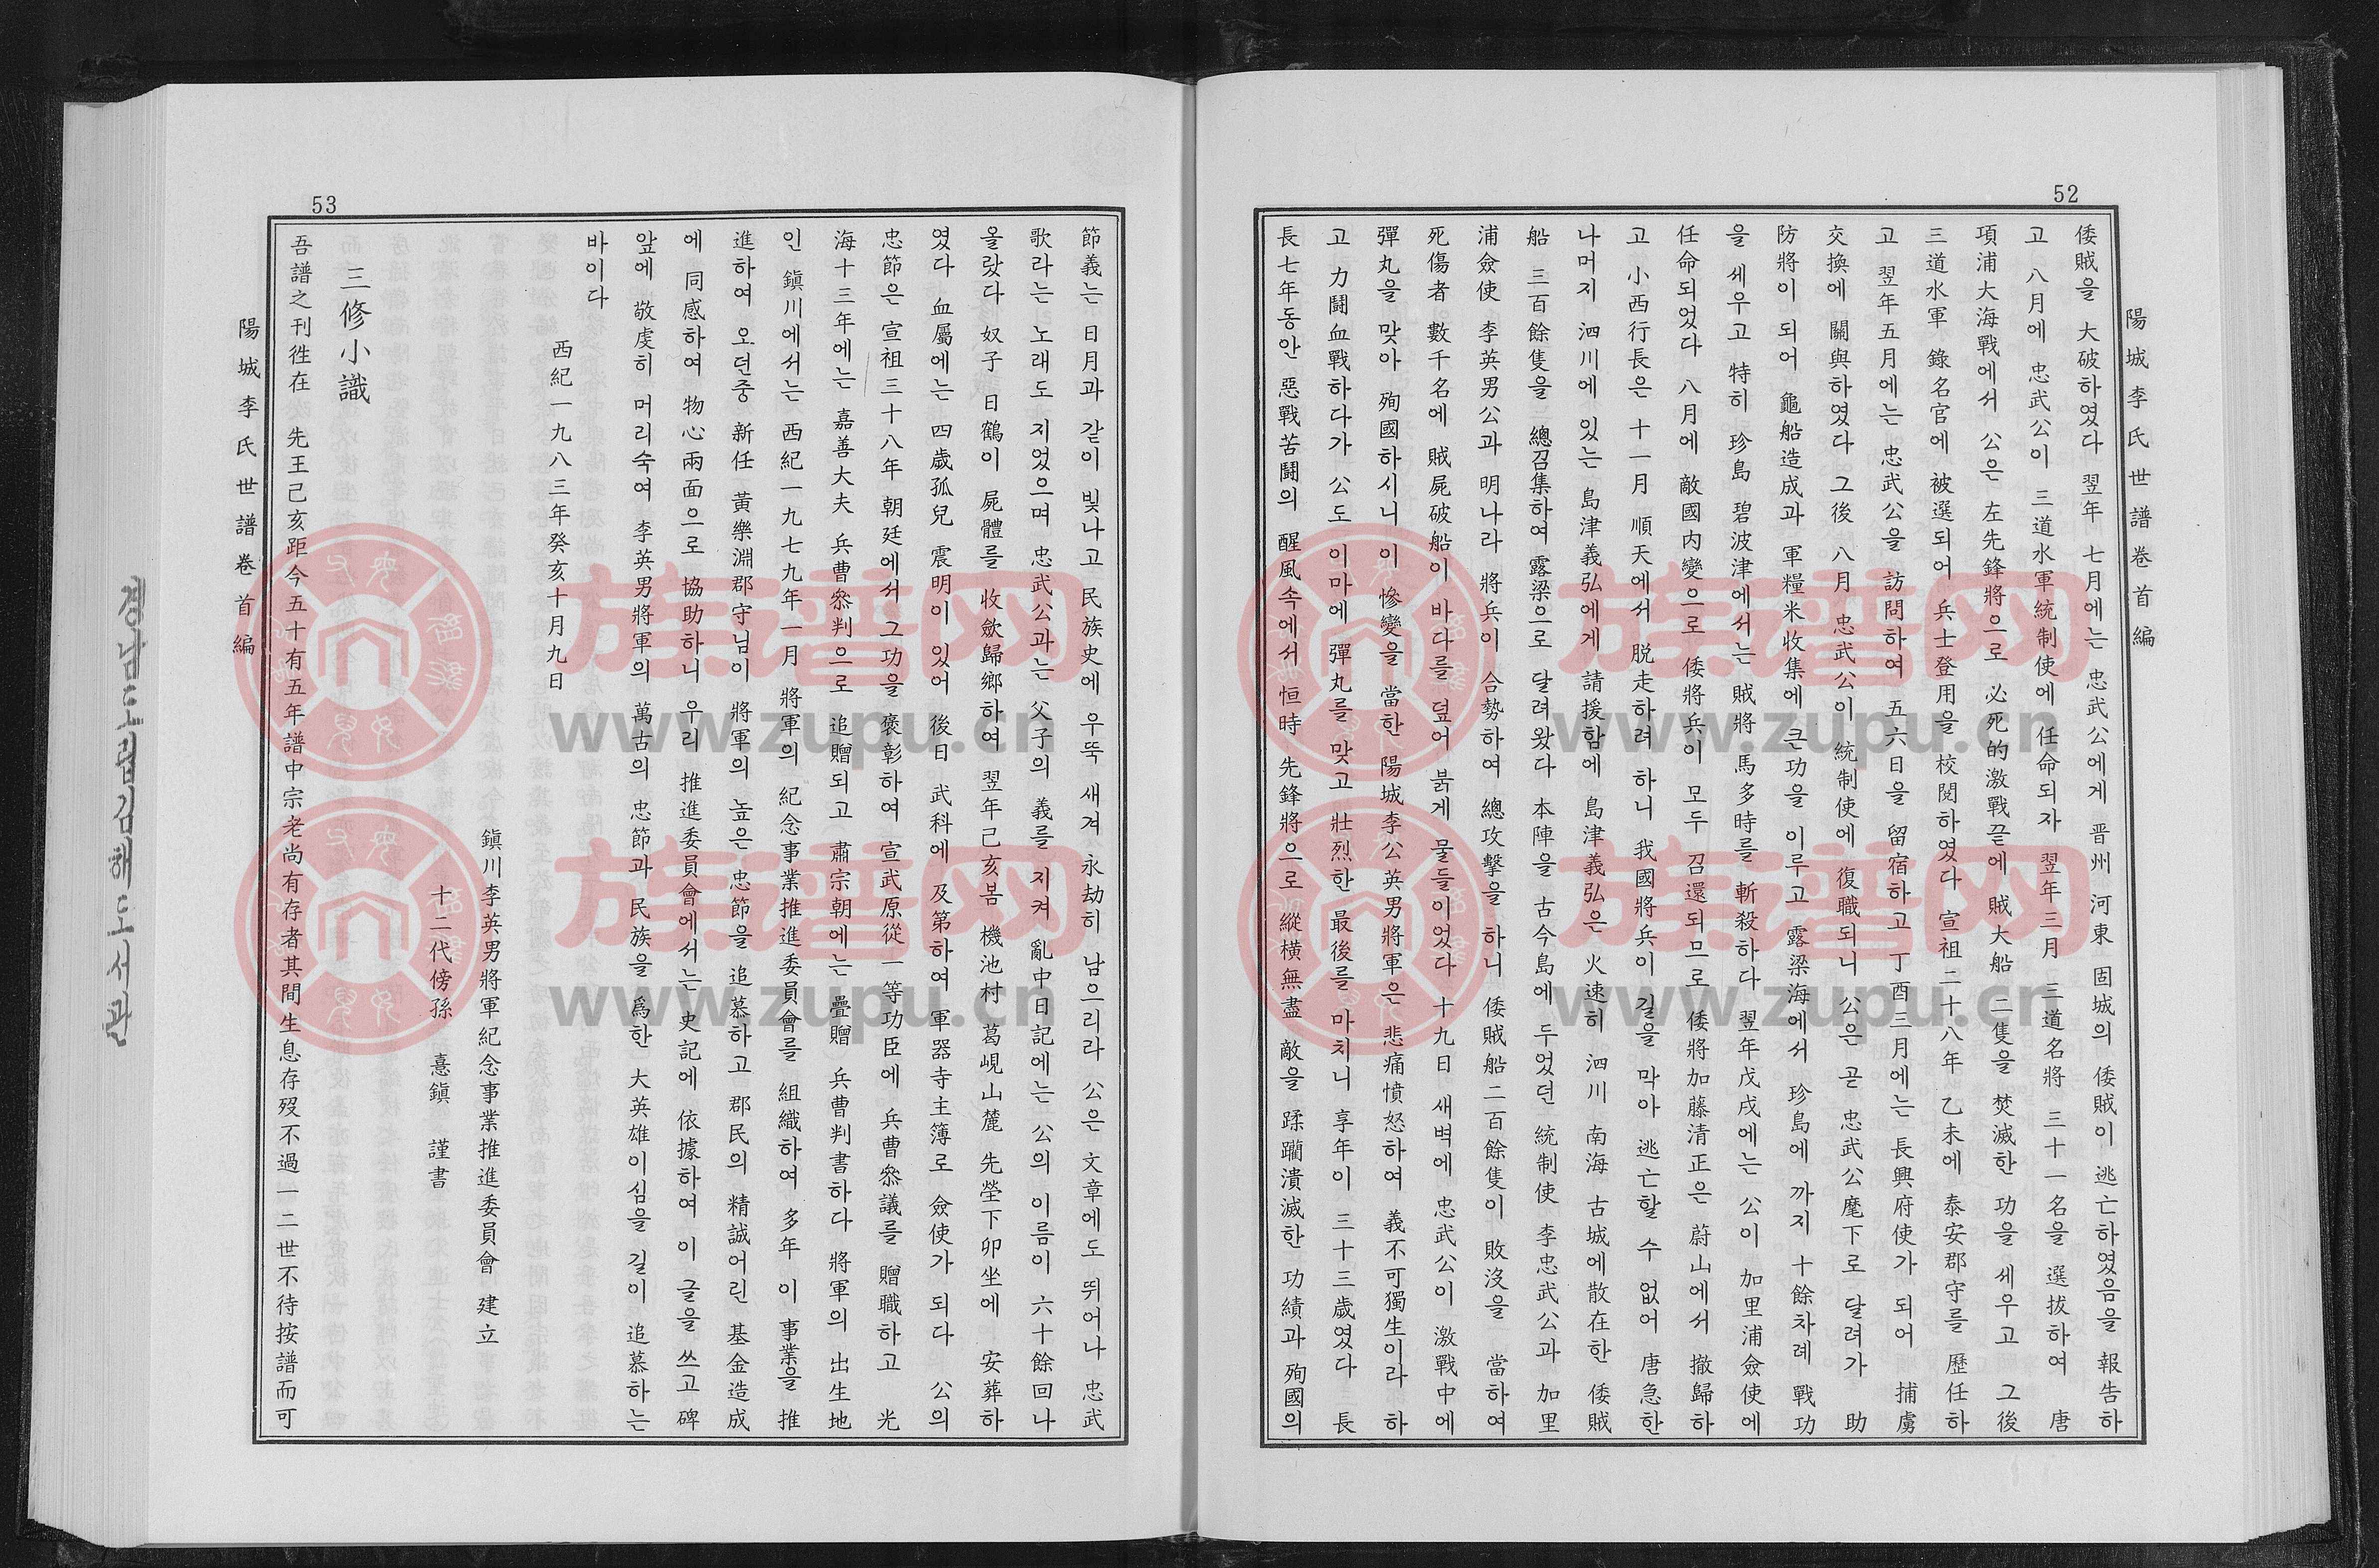 52
陽城李氏世譜卷首編
倭賊을 大破하였다 翌年 七月에는 忠武公에게 晋州 河東 固城의 倭賊이 逃亡하였음을 報告하
고 八月에 忠武公이 三道水軍統制使에 任命되자 翌年三月 三道名將 三十一名을 選拔하여 唐
項浦大海戰에서 公은 左先鋒將으로 必死的激戰끝에 賊大船 二隻을 焚滅한 功을 세우고 그後
三道水軍 錄名官에 被選되어 兵士登用을 校閱하였다 宣祖二十八年 乙未에 泰安郡守를 歷任하
고 翌年五月에는 忠武公을 訪問하여 五六日을 留宿하고 丁酉三月에는 長興府使가 되어 捕虜
交換에 關與하였다 그後 八月 忠武公이 統制使에 復職되니 公은 곧 忠武公麾下로 달려가 助
防將이 되어 龜船造成과 軍糧米收集에 큰功을 이루고 露梁海에서 珍島에 까지 十餘차례 戰功
을 세우고 特히 珍島 碧波津에서는 賊將 馬多時를 斬殺하다 翌年戊戌에는 公이 加里浦僉使에
任命되었다 八月에 敵國內變으로 倭將兵이 모두 召還되므로 倭將加藤淸正은 蔚山에서 撤歸하
고 小西行長은 十一月 順天에서 脫走하려 하니 我國將兵이 길을 막아 逃亡할 수 없어 唐急한
나머지 泗川에 있는 島津義弘에게 請援함에 島津義弘은 火速히 泗川 南海 古城에散在한 倭賊
船 三百餘隻을 總召集하여 露梁으로 달려왔다 本陣을 古今島에 두었던 統制使 李忠武公과 加里
浦僉使 李英男公과 明나라 將兵이 合勢하여 總攻擊을 하니 倭賊船二百餘隻이 敗沒을 當하여
死傷者 數千名에 賊屍破船이 바다를 덮어 붉게 물들이었다 十九日 새벽에 忠武公이 激戰中에
彈丸을 맞아 殉國하시니 이 慘變을 當한 陽城李公英男將軍은 悲痛憤怒하여 義不可獨生이라 하
고 力鬪血戰하다가 公도 이마에 彈丸를 맞고 壯烈한 最後를 마치니 享年이 三十三歲였다 長
長七年동안 惡戰苦鬪의 醒風속에서 恒時 先鋒將으로 縱橫無盡 敵을 蹂躪潰滅한 功績과 殉國의
53
節義는 日月과 같이 빛나고 民族史에 우뚝 새겨 永劫히 남으리라 公은 文章에도 뛰어나 忠武
歌라는 노래도 지었으며 忠武公과는 父子의 義를 지켜 亂中日記에는 公의 이름이 六十餘回나
올랐다 奴子 日鶴이 屍體를 收歛歸鄕하여 翌年己亥봄 機池村 葛峴山麓 先塋下卯坐에 安葬하
였다 血屬에는 四歲孤兒 震明이 있어 後日 武科에 及第하여 軍器寺主簿로 僉使가 되다 公의
忠節은 宣祖三十八年 朝廷에서 그功을 褒彰하여 宣武原從一等功臣에 兵曹叅議를 贈職하고 光
海十三年에는 嘉善大夫 兵曹叅判으로 追贈되고 肅宗朝에는 疊贈 兵曹判書하다 將軍의 出生地
인 鎭川에서는 西紀一九七九年一月 將軍의 紀念事業推進委員會를 組織하여 多年 이 事業을 推
進하여 오던중 新任 黃樂淵郡守님이 將軍의 높은忠節을 追慕하고 郡民의 精誠어린 基金造成
에 同感하여 物心兩面으로 協助하니 우리 推進委員會에서는 史記에 依據하여 이 글을 쓰고 碑
앞에 敬虔히 머리숙여 李英男將軍의 萬古의 忠節과 民族을 爲한 大英雄이심을 길이 追慕하는
바이다
西紀一九八三年癸亥十月九日
鎭川李英男將軍紀念事業推進委員會 建立
十二代傍孫 憙鎭 謹書
三修小識
吾譜之刊徃在 先王己亥距今五十有五年譜中宗老尚有存者其間生息存歿不過一二世不待按譜而可
陽城李氏世譜卷首編
경남도립김해도서관
族譜网
www.zupu.cn
族譜网
www.zupu.cn
族譜网
www.zupu.cn
族譜网
www.zupu.cn